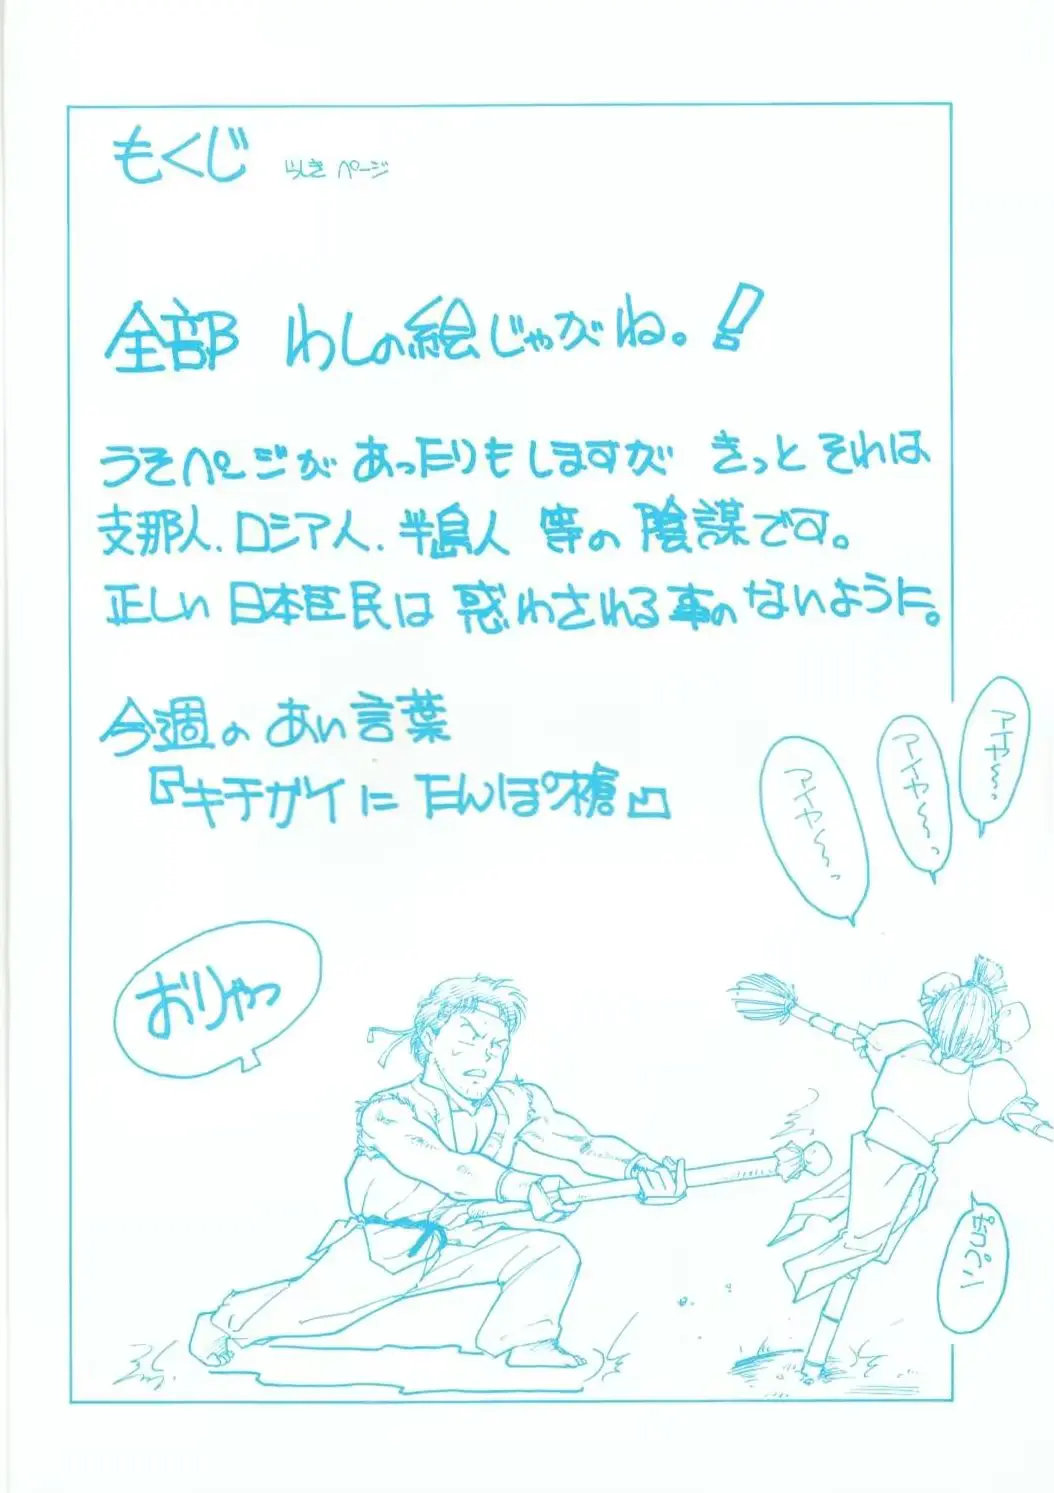 もくじ らしき ページ
全部 わしの絵じゃがね。!
うそページが あったりもしますが きっと それは
支那人、ロシア人、半島人 等の 陰謀です。
正しい 日本臣民は 惑わされる事の ないように。
今週の あい言葉
『キチガイに たんぽ槍』
アイヤ〜〜っ
アイヤ〜〜っ
アイヤ〜〜っ
おりゃっ